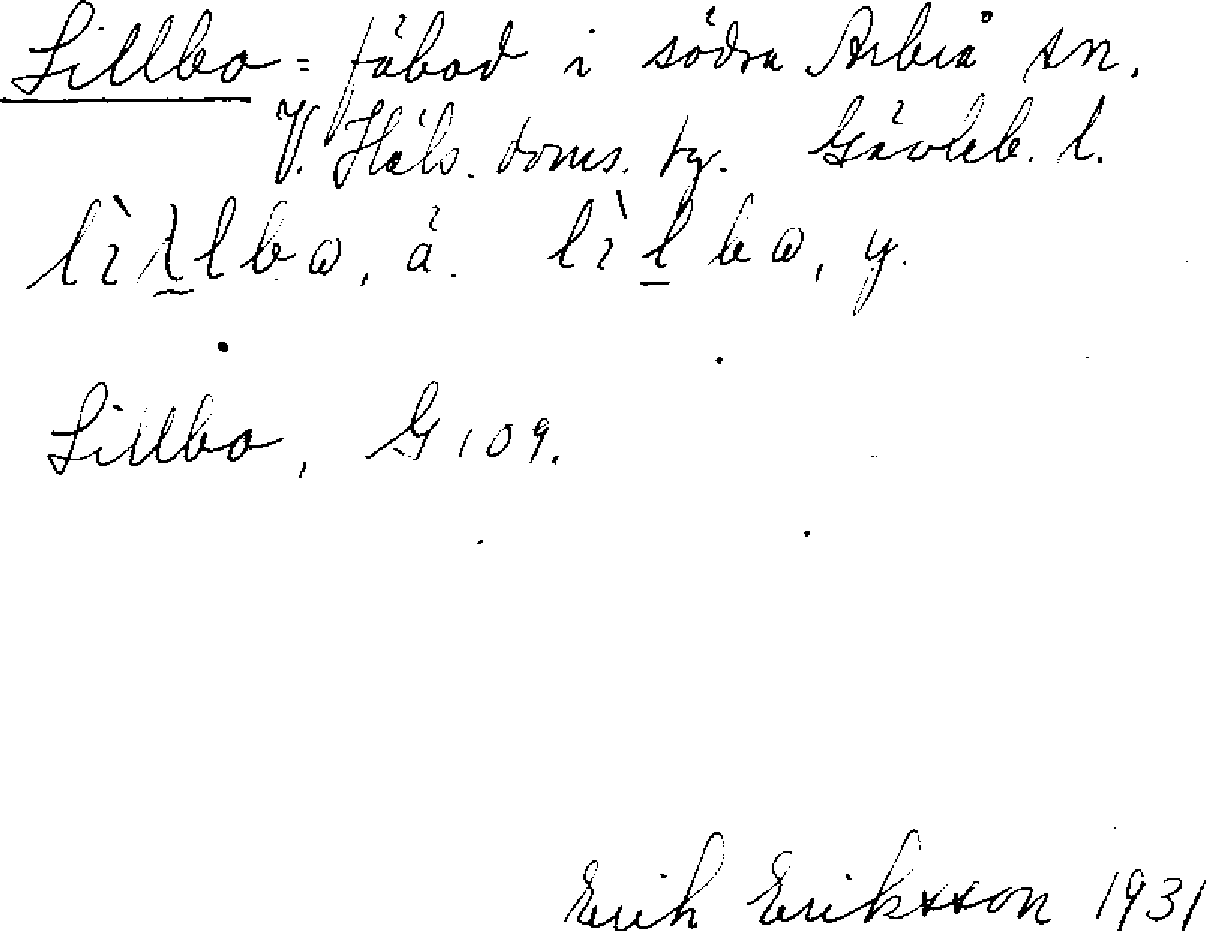 Lillbo = fäbod i södra Arbrå sn.
V. Häls. doms. tg. Gävleb. l.
lìλlbɷ, ä. lìlbɷ, y.
Lillbo, G 109.
Erik Eriksson 1931